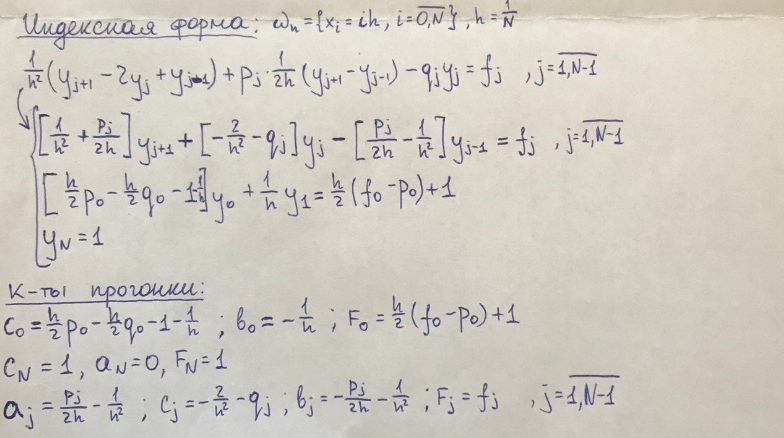 Индексная форма: ωₕ={xᵢ=ih, i=0,N̅}, h=1/N
1/h²(yⱼ₊₁-2yⱼ+yⱼ₋₁)+pⱼ·1/2h(yⱼ₊₁-yⱼ₋₁)-qⱼyⱼ=fⱼ , j=1,N-1
[1/h²+pⱼ/2h]yⱼ₊₁+[-2/h²-qⱼ]yⱼ-[pⱼ/2h-1/h²]yⱼ₋₁=fⱼ , j=1,N-1
[h/2 p₀-h/2 q₀-1-1/h]y₀+1/h y₁=h/2(f₀-p₀)+1
y_N=1
К-ты прогонки:
c₀=h/2 p₀-h/2 q₀-1-1/h ; b₀=-1/h ; F₀=h/2(f₀-p₀)+1
c_N=1, a_N=0, F_N=1
aⱼ=pⱼ/2h-1/h² ; cⱼ=-2/h²-qⱼ ; bⱼ=-pⱼ/2h-1/h² ; Fⱼ=fⱼ , j=1,N-1